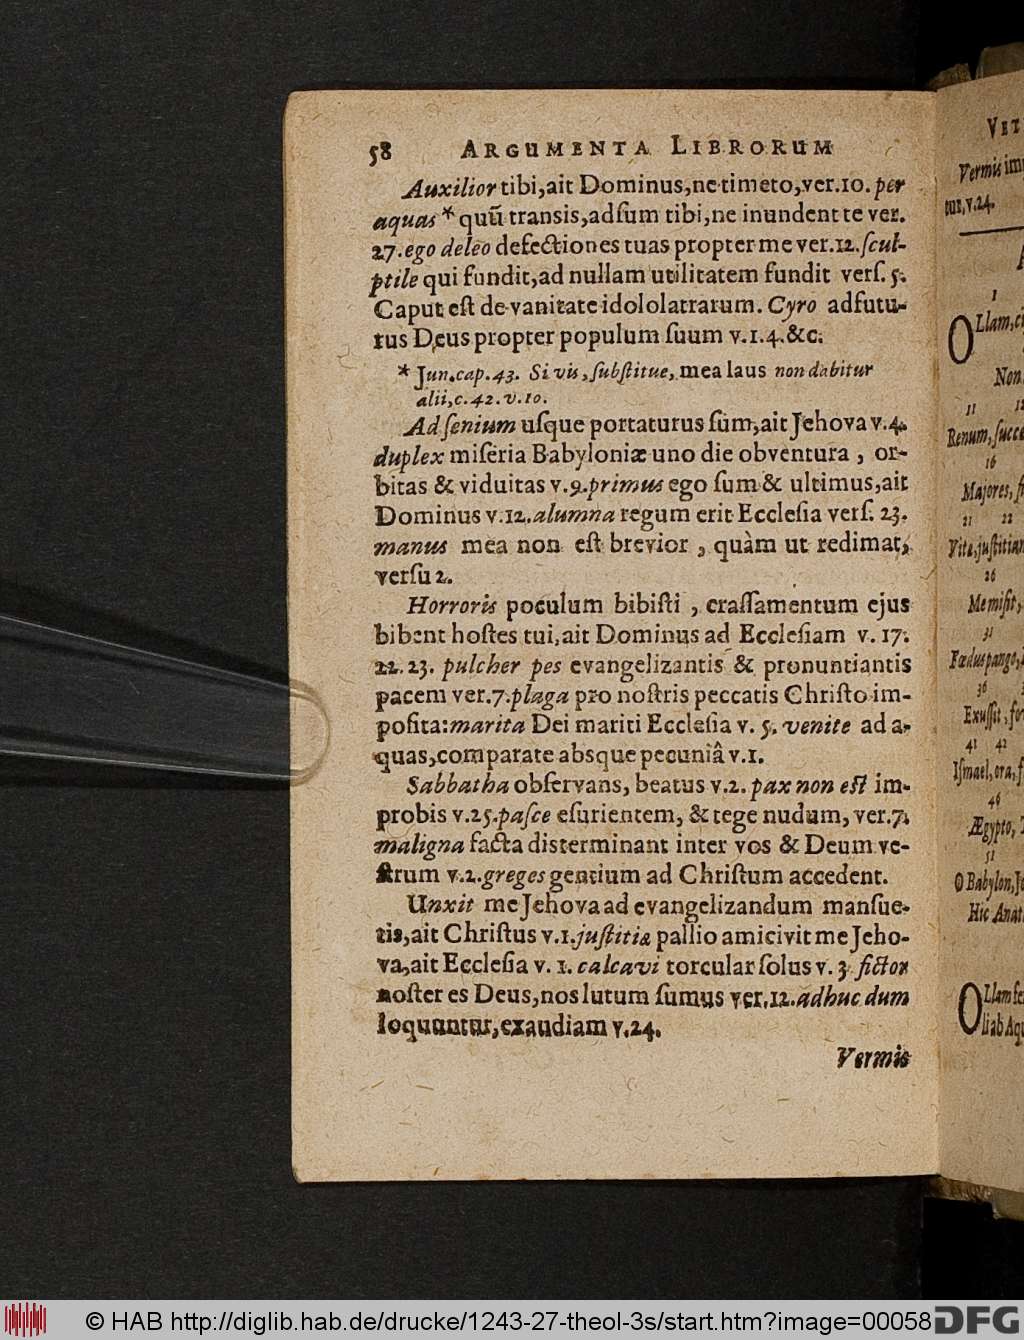 58 ARGUMENTA LIBRORUM
Auxilior tibi, ait Dominus, ne timeto, ver. 10. per
aquas * quũ transis, adſum tibi, ne inundent te ver.
27. ego deleo defectiones tuas propter me ver. 12. ſcul-
ptile qui fundit, ad nullam utilitatem fundit verſ. 5.
Caput eſt de vanitate idololatrarum. Cyro adfutu-
rus Deus propter populum ſuum v. 1. 4. &c.
* Jun. cap. 43. Si vis, ſubſtitue, mea laus non dabitur
alii, c. 42. v. 10.
Ad ſenium uſque portaturus ſum, ait Jehova v. 4.
duplex miſeria Babyloniæ uno die obventura, or-
bitas & viduitas v. 9. primus ego ſum & ultimus, ait
Dominus v. 12. alumna regum erit Eccleſia verſ. 23.
manus mea non eſt brevior, quàm ut redimat,
verſu 2.
Horroris poculum bibiſti, craſſamentum ejus
bibent hoſtes tui, ait Dominus ad Eccleſiam v. 17.
22. 23. pulcher pes evangelizantis & pronuntiantis
pacem ver. 7. plaga pro noſtris peccatis Chriſto im-
poſita: marita Dei mariti Eccleſia v. 5. venite ad a-
quas, comparate absque pecuniâ v. 1.
Sabbatha obſervans, beatus v. 2. pax non eſt im-
probis v. 25. paſce eſurientem, & tege nudum, ver. 7.
maligna facta disterminant inter vos & Deum ve-
ſtrum v. 2. greges gentium ad Chriſtum accedent.
Unxit me Jehova ad evangelizandum manſue-
tis, ait Chriſtus v. 1. juſtitiæ pallio amicivit me Jeho-
va, ait Eccleſia v. 1. calcavi torcular ſolus v. 3 fictor
noſter es Deus, nos lutum ſumus ver. 12. adhuc dum
loquuntur, exaudiam v. 24.
Vermis
VET
Vermis
tur, v. 24.
1
OLlam,
Non
11 12
Renum,
16
Majores,
21 22
Vita, juſtitiam
26
Me miſit,
31
Fœdus pango,
36
Exuſſit,
41 42
Iſmael, ora,
46
Ægypto,
51
O Babylon,
Hic
OLlam
© HAB http://diglib.hab.de/drucke/1243-27-theol-3s/start.htm?image=00058
DFG